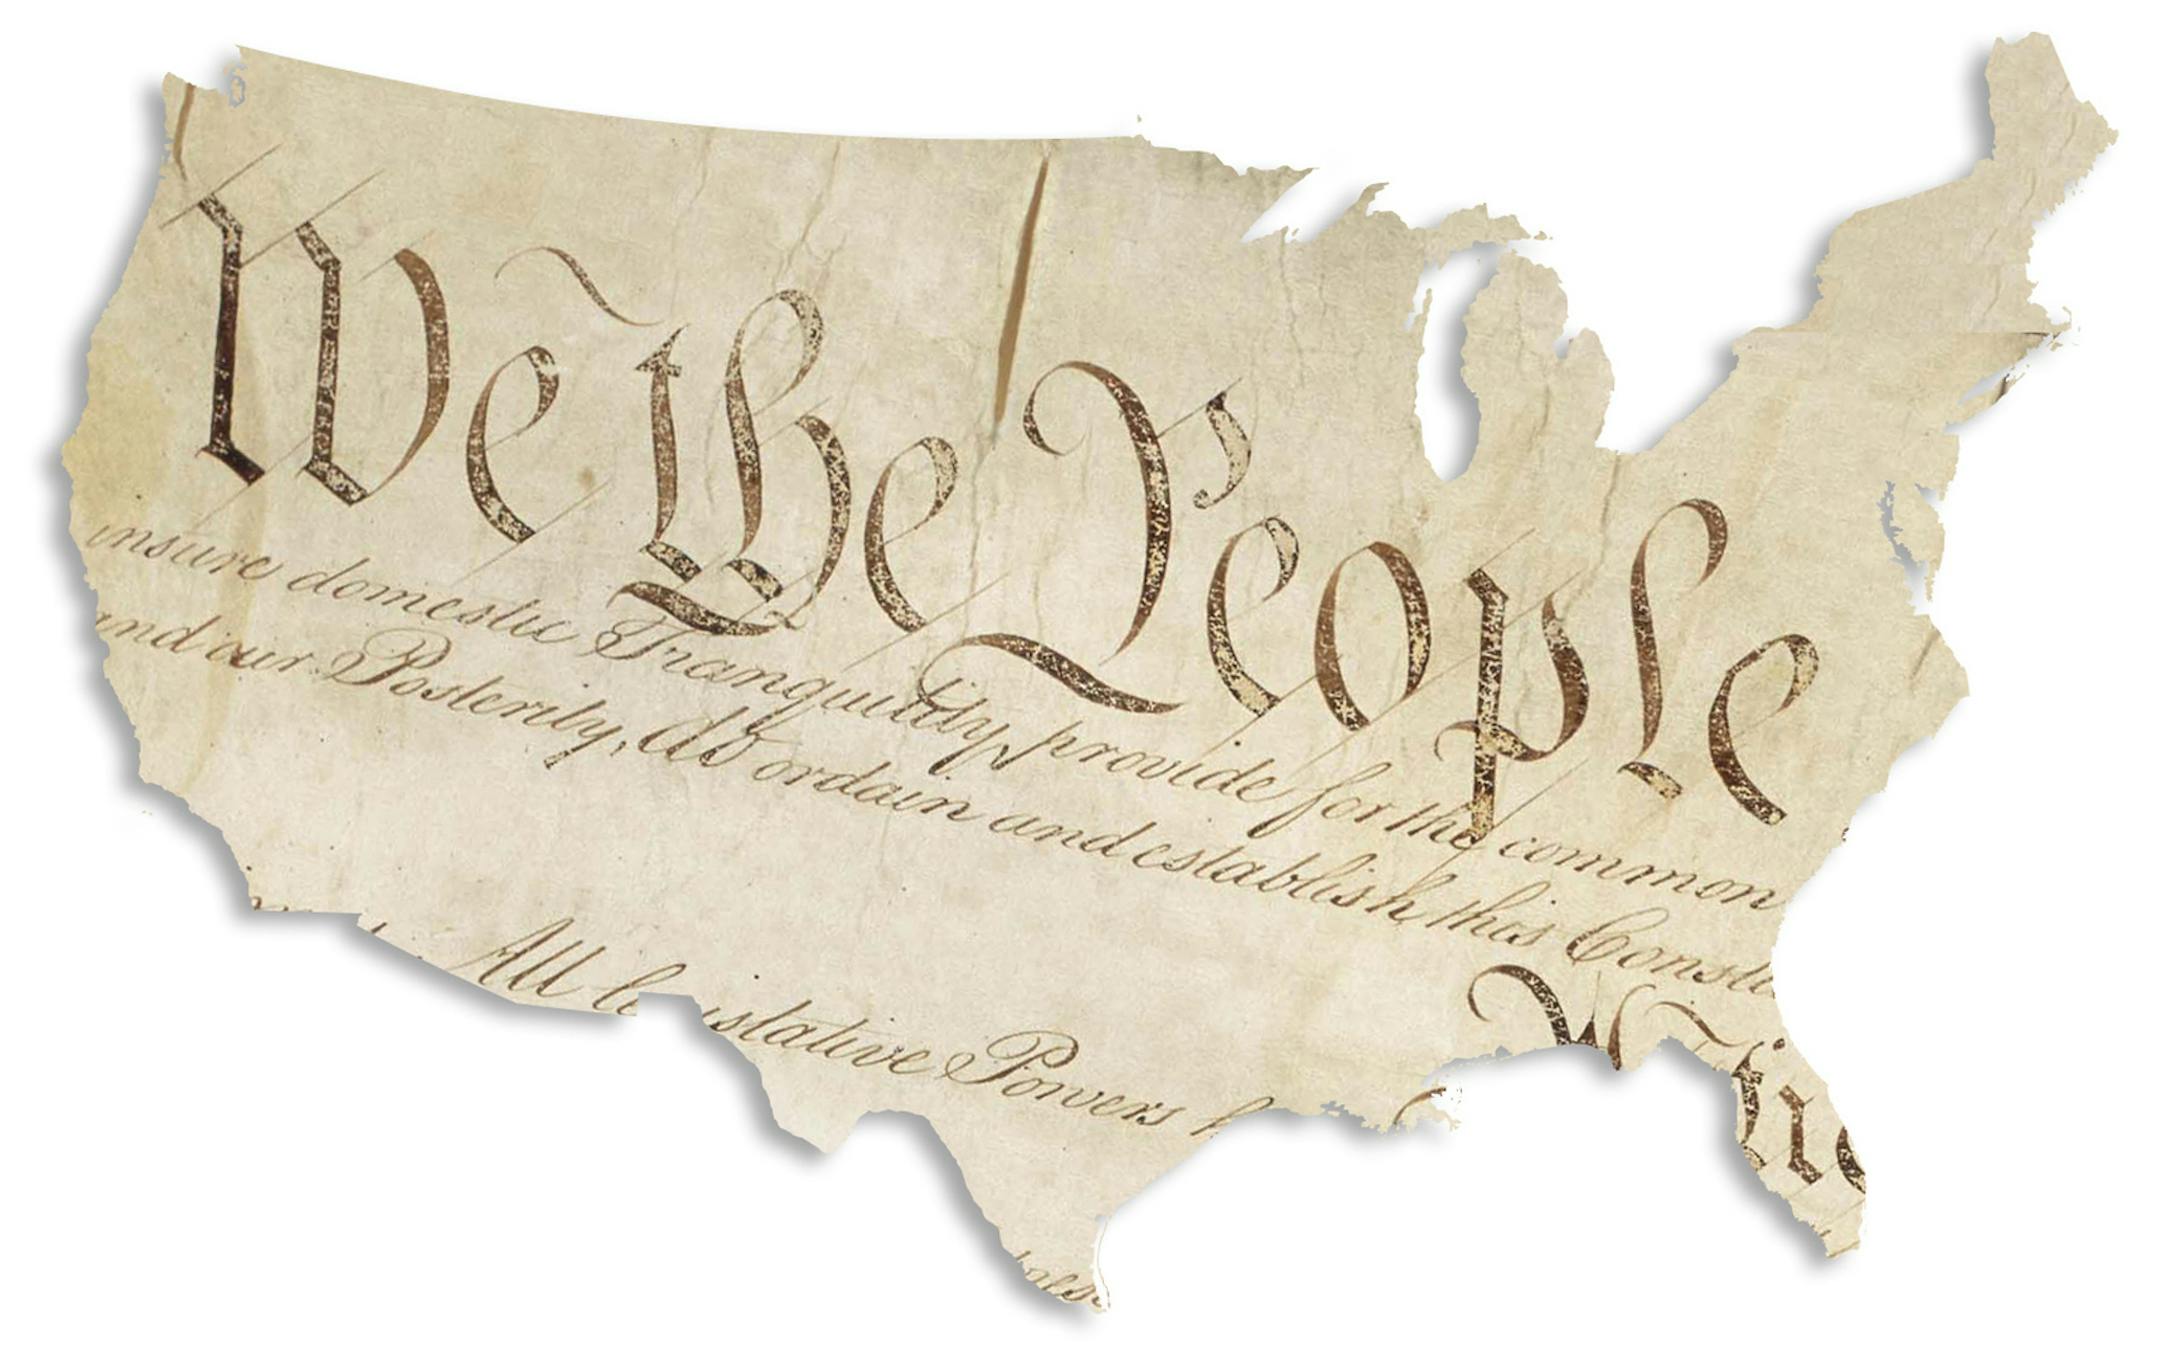 We the People
insure domestic Tranquility, provide for the common
and our Posterity, do ordain and establish this Const
All le islative Powers h